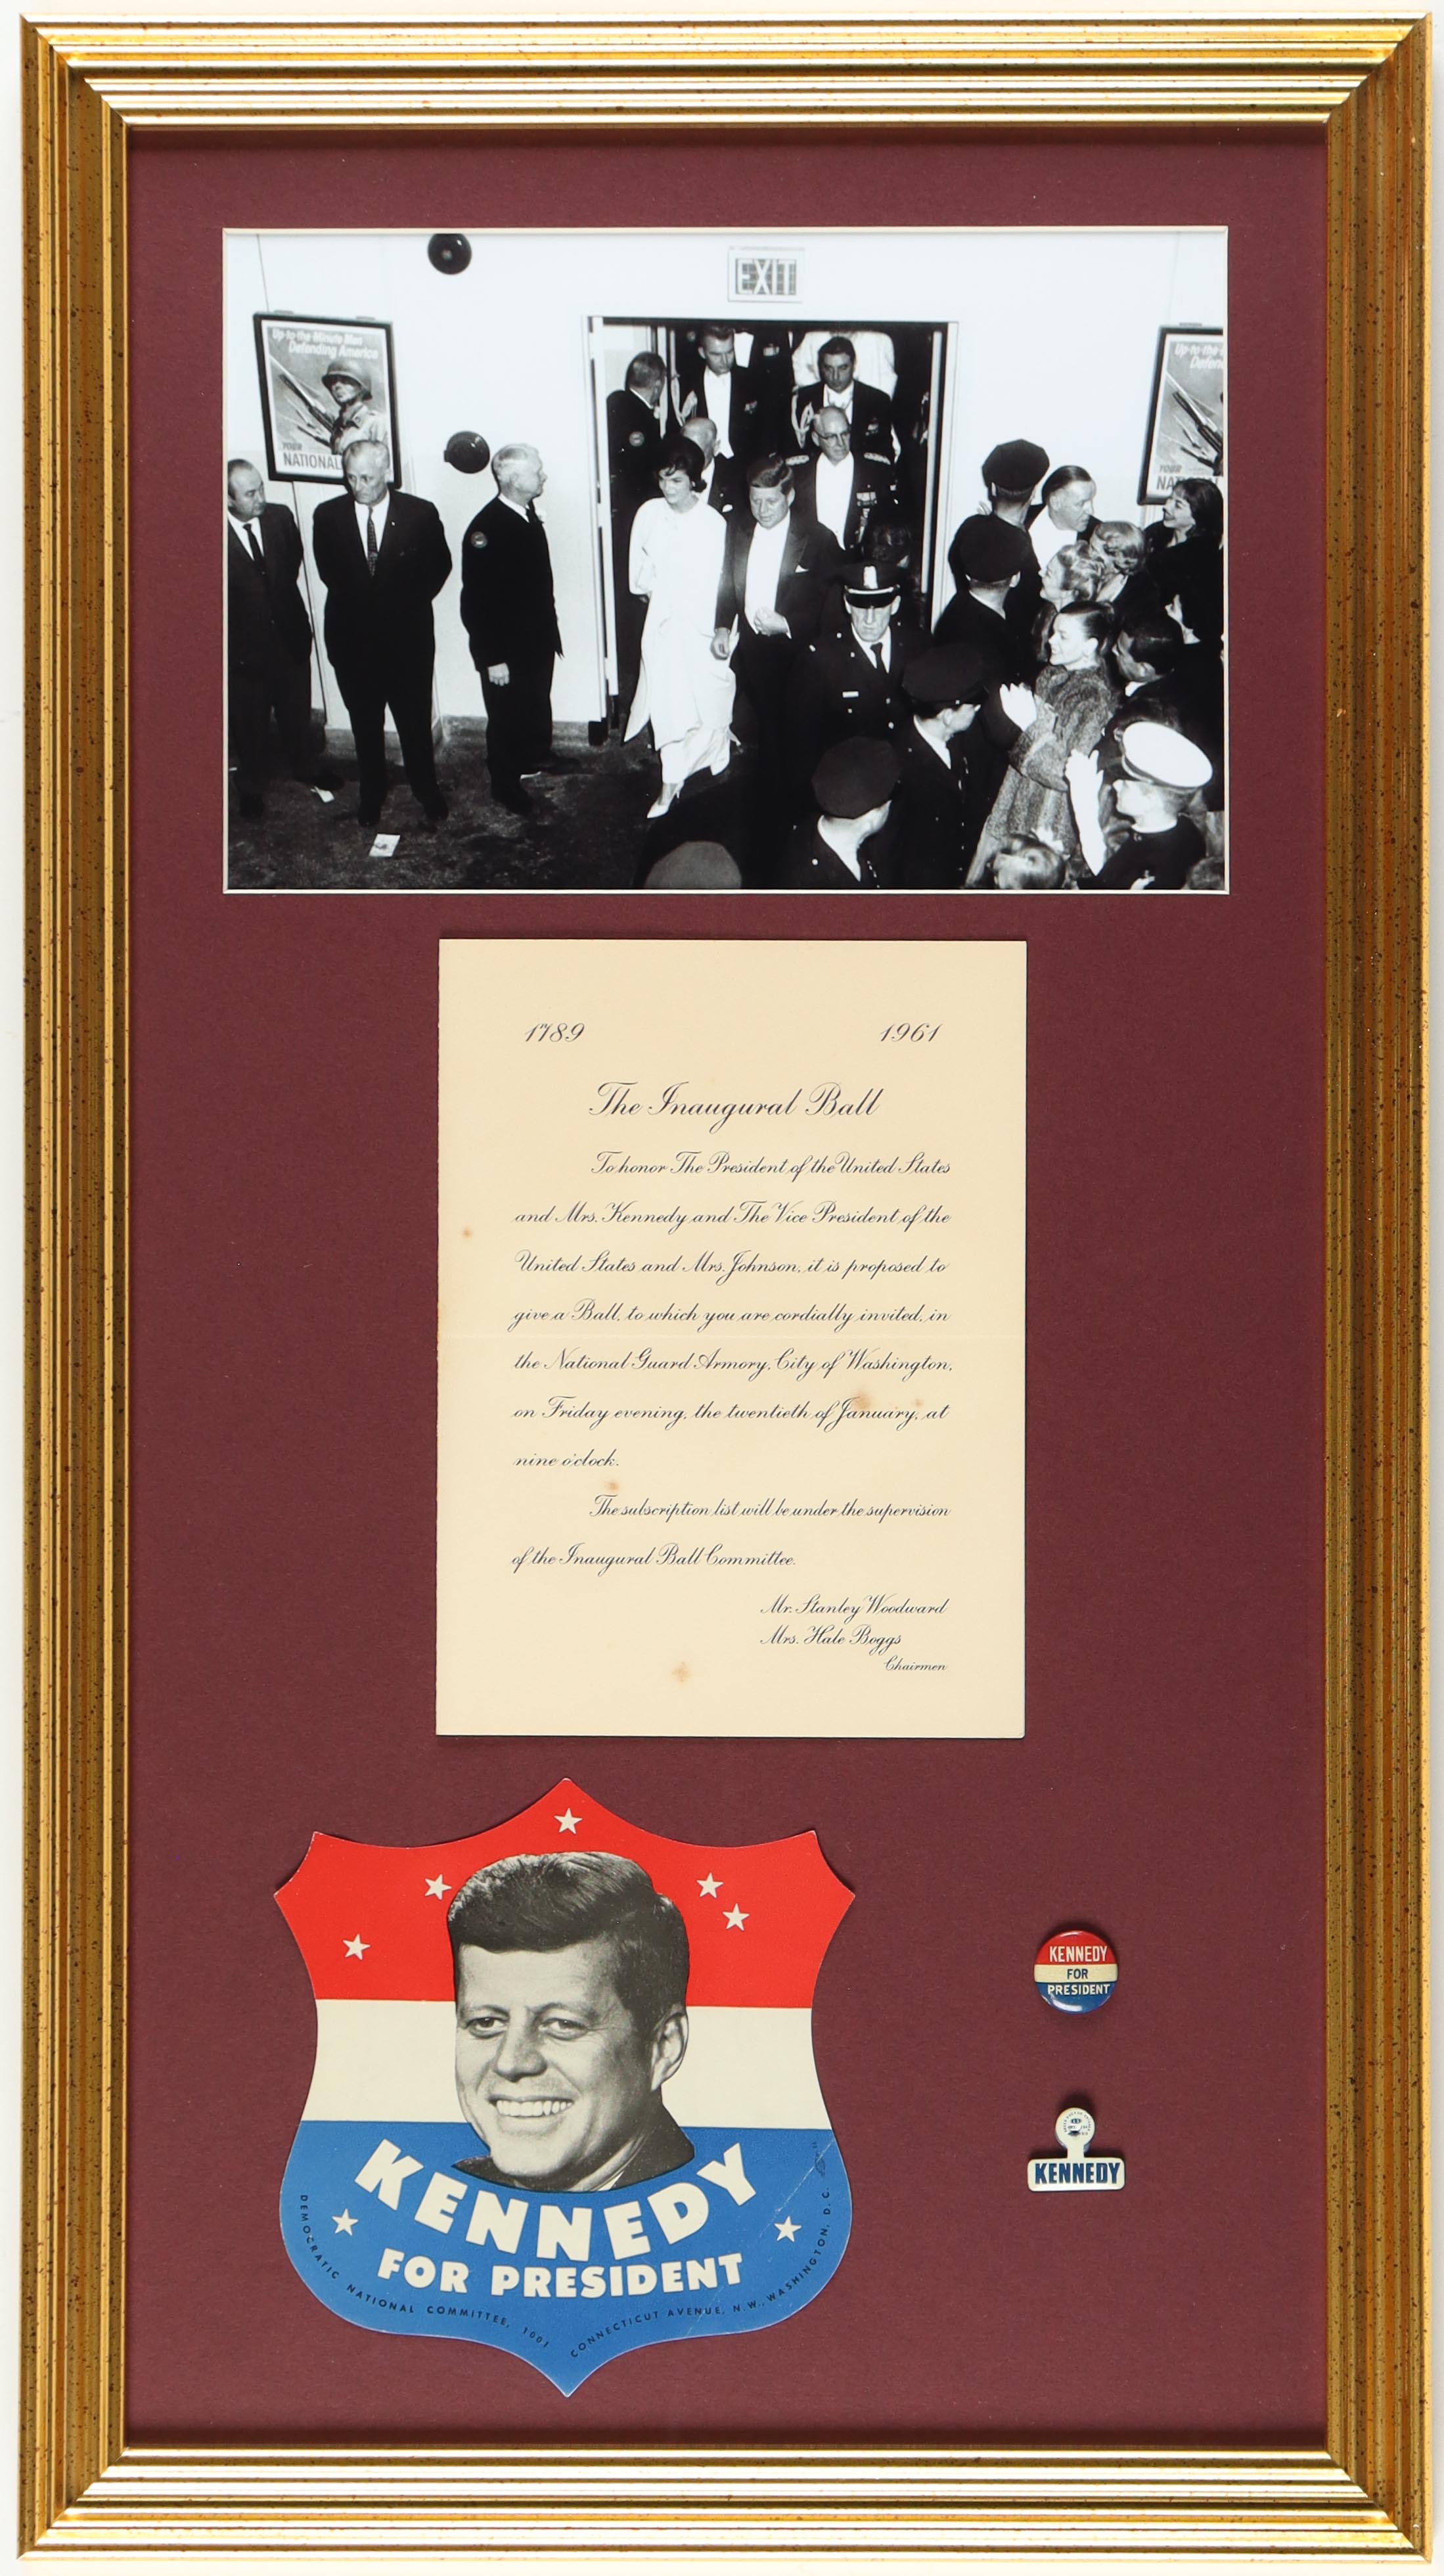 EXIT
Up-to-the-Minute Men
Defending America
YOUR
NATIONAL
Up-to-the
Defen
YOUR
NAT
1789 1961
The Inaugural Ball
To honor The President of the United States
and Mrs. Kennedy and The Vice President of the
United States and Mrs. Johnson, it is proposed to
give a Ball, to which you are cordially invited, in
the National Guard Armory, City of Washington,
on Friday evening, the twentieth of January, at
nine o'clock.
The subscription list will be under the supervision
of the Inaugural Ball Committee.
Mr. Stanley Woodward
Mrs. Hale Boggs
Chairmen
KENNEDY
FOR PRESIDENT
DEMOCRATIC NATIONAL COMMITTEE, 1001 CONNECTICUT AVENUE, N.W., WASHINGTON, D.C.
KENNEDY
FOR
PRESIDENT
KENNEDY